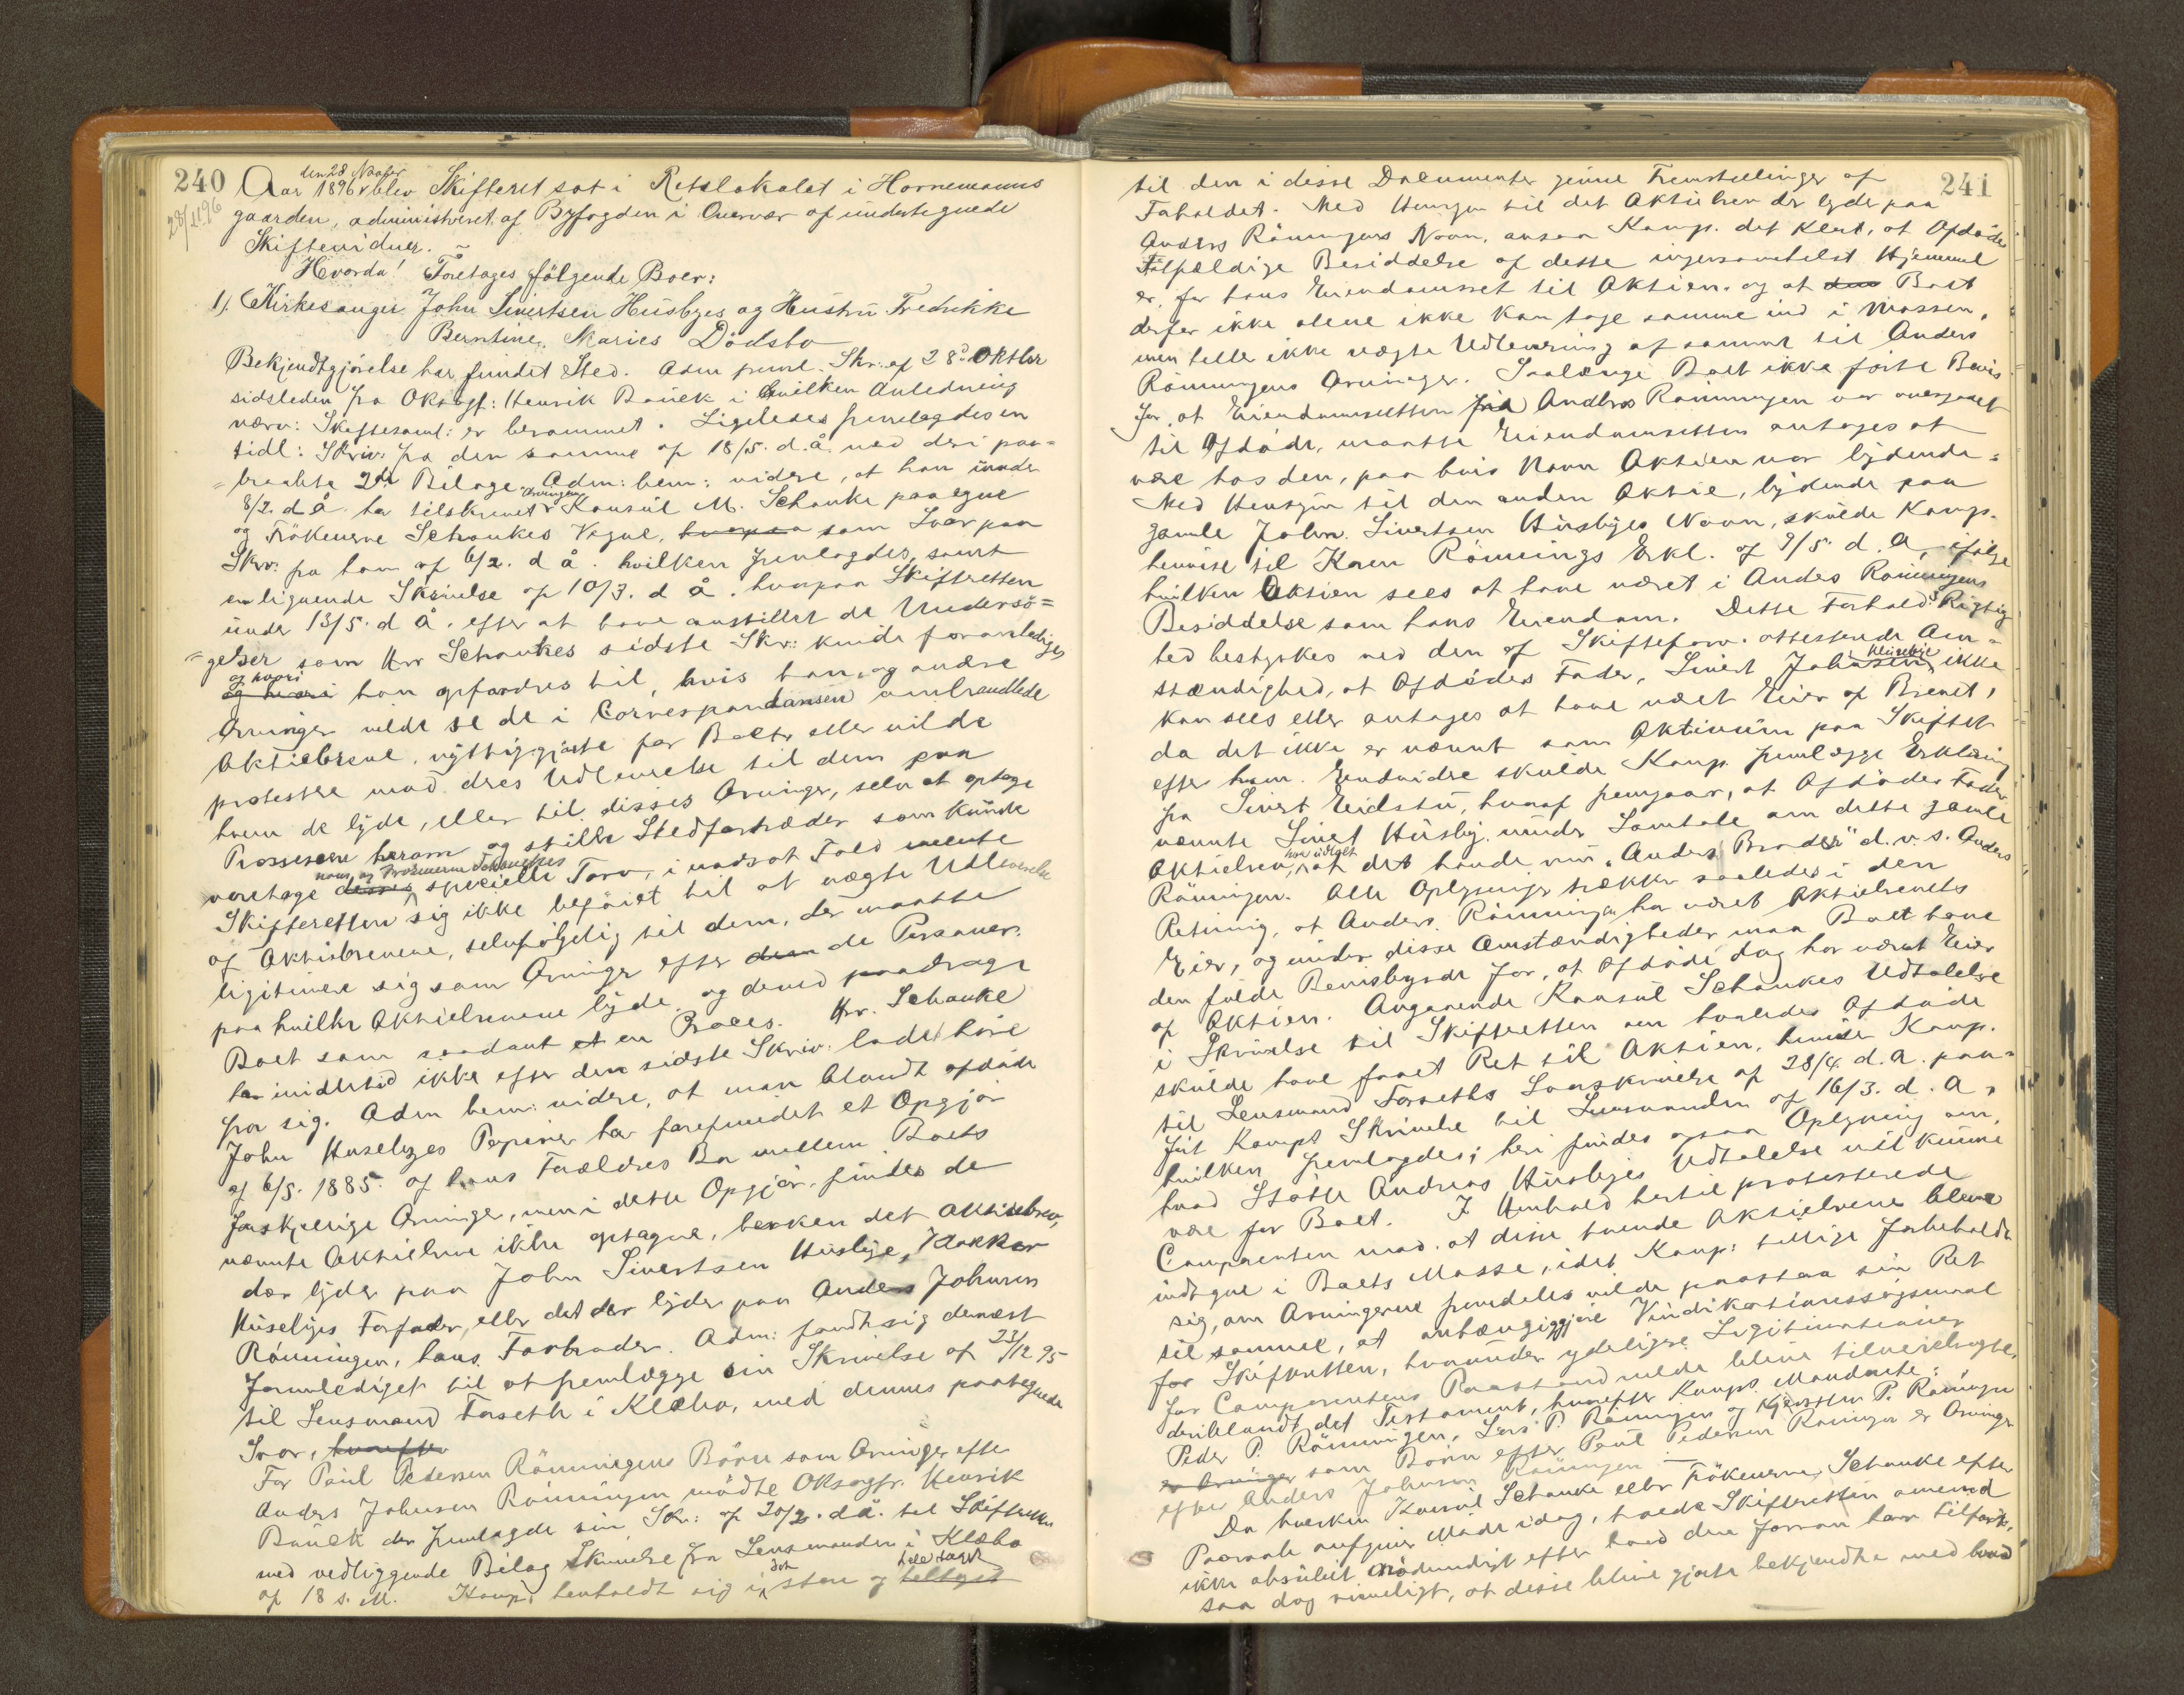 240
28/11 96
den 28 Novbr
Aar 1896 blev Skifteret sat i Retslokalet i Hornemanns
gaarden, administreret af Byfogden i Overvær af undertegnede
Skiftevidner.
Hvorda! Foretages følgende Boer:
1). Kirkesanger John Sivertsen Husbyes og Hustru Fredrikke
Berntine Maries Dödsbo
Bekjendtgjörelse har fundet Sted. Adm freml. Skr. af 28de Oktbr
sidstleden fra Oksagf: Henrik Bauck i hvilken Anledning
nærv: Skiftesaml: er berammet. Ligeledes fremlagdes en
tidl: Skriv: fra den samme af 18/5. d. å. med deri paa=
=beraabte 2de Bilage. Adm: bem: videre, at han under
8/2. d å. har tilskrevet Arvingen Konsul M. Schanke paa egne
og Frökenerne Schankes Vegne, som Svar paa
Skr: fra ham af 6/2. d å. hvilken fremlagdes, samt
en lignende Skrivelse af 10/3. d å. hvorpaa Skifteretten
under 13/5. d å. efter at have anstillet de Undersö=
=gelser som Hr Schankes sidste Skr: kunde foranledige,
og hvori han opfordres til, hvis han og andre
Arvinger vilde se de i Correspondansen omhandlede
Aktiebreve, nyttiggjorte for Boet eller vilde
protestere mod deres Udleverelse til dem paa
hvem de lyde, eller til disses Arvinger, selv at optage
Prossessen herom og stille Stedfortræder som kunde
varetage hans og Frökenerne Schankes specielle Tarv, i modsat Fald mente
Skifteretten sig ikke beföiet til at nægte Udleverelse
af Aktiebrevene, selvfölgelig til dem, der maatte
ligitimere sig som Arvinger efter de Personer,
paa hvilke Aktiebrevene lyde, og derved paadrage
Boet som saadant et en Proces. Hr. Schanke
har imidlertid ikke efter den sidste Skriv: ladet höre
fra sig. Adm bem: videre, at man blandt afdöde
John Husebyes Papirer har forefundet et Opgjör
af 6/5. 1885. af hans Forældres Bo mellem Boets
forskjellige Arvinge, men i dette Opgjör findes de
nævnte Aktiebreve ikke optagne, hverken det Aktiebrev,
der lyder paa John Sivertsen Husbye, Klokker
Husebyes Forfader, eller det der lyder paa Anders Johnsen
Rönningen, hans Farbroder. Adm: fandt sig dernæst
foranlediget til at fremlægge sin Skrivelse af 23/12 95
til Lensmand Forseth i Klæbo, med dennes paategnede
Svar, hvorefter
For Paul Pedersen Rönningens Börn som Arvinger efter
Anders Johnsen Rönningen mödte Oksagfr. Henrik
Bauck der fremlagde sin Skr: af 20/2. då. til Skifteretten
med vedliggende Bilag Skrivelse fra Lensmanden i Klæbo
af 18 s. M. Komp: henholdt sig i det store og hele taget
241
til den i disse Dokumenter givne Fremstillinger af
Forholdet. Med Hensyn til det Aktiebrev der lyder paa
Anders Rönningens Navn, ansaa Komp. det klart, at Afdöde
Tilfældige Besiddelse af dette ingensomhelst Hjemmel
er, for hans Eiendomsret til Aktien, og at Boet
derfor ikke alene ikke kan tage samme ind i Massen,
men heller ikke nægte Udlevering af samme til Anders
Rönningens Arvinger. Saalænge Boet ikke förte Bevis
for, at Eiendomsretten fra Anders Rönningen var overgaaet
til Afdöde, maatte Eiendomsretten antages at
være hos den, paa hvis Navn Aktien var lydende.
Med Hensyn til den anden Aktie, lydende paa
gamle John Sivertsen Husbyes Navn, skulde Komp.
henvise til Karen Rönnings Erkl. af 9/5. d. A. ifölge
hvilken Aktien sees at have været i Anders Rönningens
Besiddelse som hans Eiendom. Dette Forholds Rigtig
hed bestyrkes ved den af Skifteforv. attesterede Om=
stændighed, at Afdödes Fader, Sivert Johnsen Husebye ikke
kan sees eller antages at have været Eier af Brevet,
da det ikke er nævnt som Aktivum paa Skiftet
efter ham. Endvidre skulde Komp. fremlægge Erklæring
fra Sivert Eidstu, hvoraf fremgaar, at Afdödes Fader
nævnte Sivert Husby under Samtale om dette gamle
Aktiebrev, har udtalt at det havde min "Anders Broder" d. v. s. Anders
Rönningen. Alle Oplysninger trækker saaledes i den
Retning, at Anders Rönningen har været Aktiebrevets
Eier, og under disse Omstændigheder maa Boet have
den fulde Bevisbyrde for, at Afdöde dog har været Eier
af Aktien. Angaaende Konsul Schankes Udtalelse
i Skrivelse til Skifteretten om hvorledes Afdöde
skulde have faaet Ret til Aktien, henviser Komp.
til Lensmand Forseths Svarskrivelse af 28/4. d. A. paa
sit Komps Skrivelse til Lensmanden af 16/3. d. A,
hvilken fremlagdes; heri findes ogsaa Oplysning om,
hvad Stötte Andreas Husbyes Udtalelse vil kunne
være for Boet. I Henhold hertil protesterede
Comparenten mod, at disse tvende Aktiebreve bleve
indtagne i Boets Masse, idet Komp: tillige forbeholdt
sig, om Arvingerne fremdeles vilde paastaa sin Ret
til samme, at anhængiggjöre Vindikationssögsmaal
for Skifteretten, hvorunder ydeligere Legitimationer
for Comparentens Paastand vilde blive tilveiebragte,
deriblandt det Testament, hvorefter Komps. Mandanter:
Peder P. Rönningen, Lars P. Rönningen og Kjersten P. Rönningen
er Arvinger som Börn efter Paul Pedersen Rönningen er Arvinger
efter Anders Johnsen Rönningen —
Da hverken Konsul Schanke eller Frökenerne Schanke efter
Paaraab angiver Möde idag, fandt Skifteretten omend
ikke absolut nödvendigt efter hvad der forran har tilfört,
saa dog rimeligt, at disse blive gjorte bekjendte med hvad